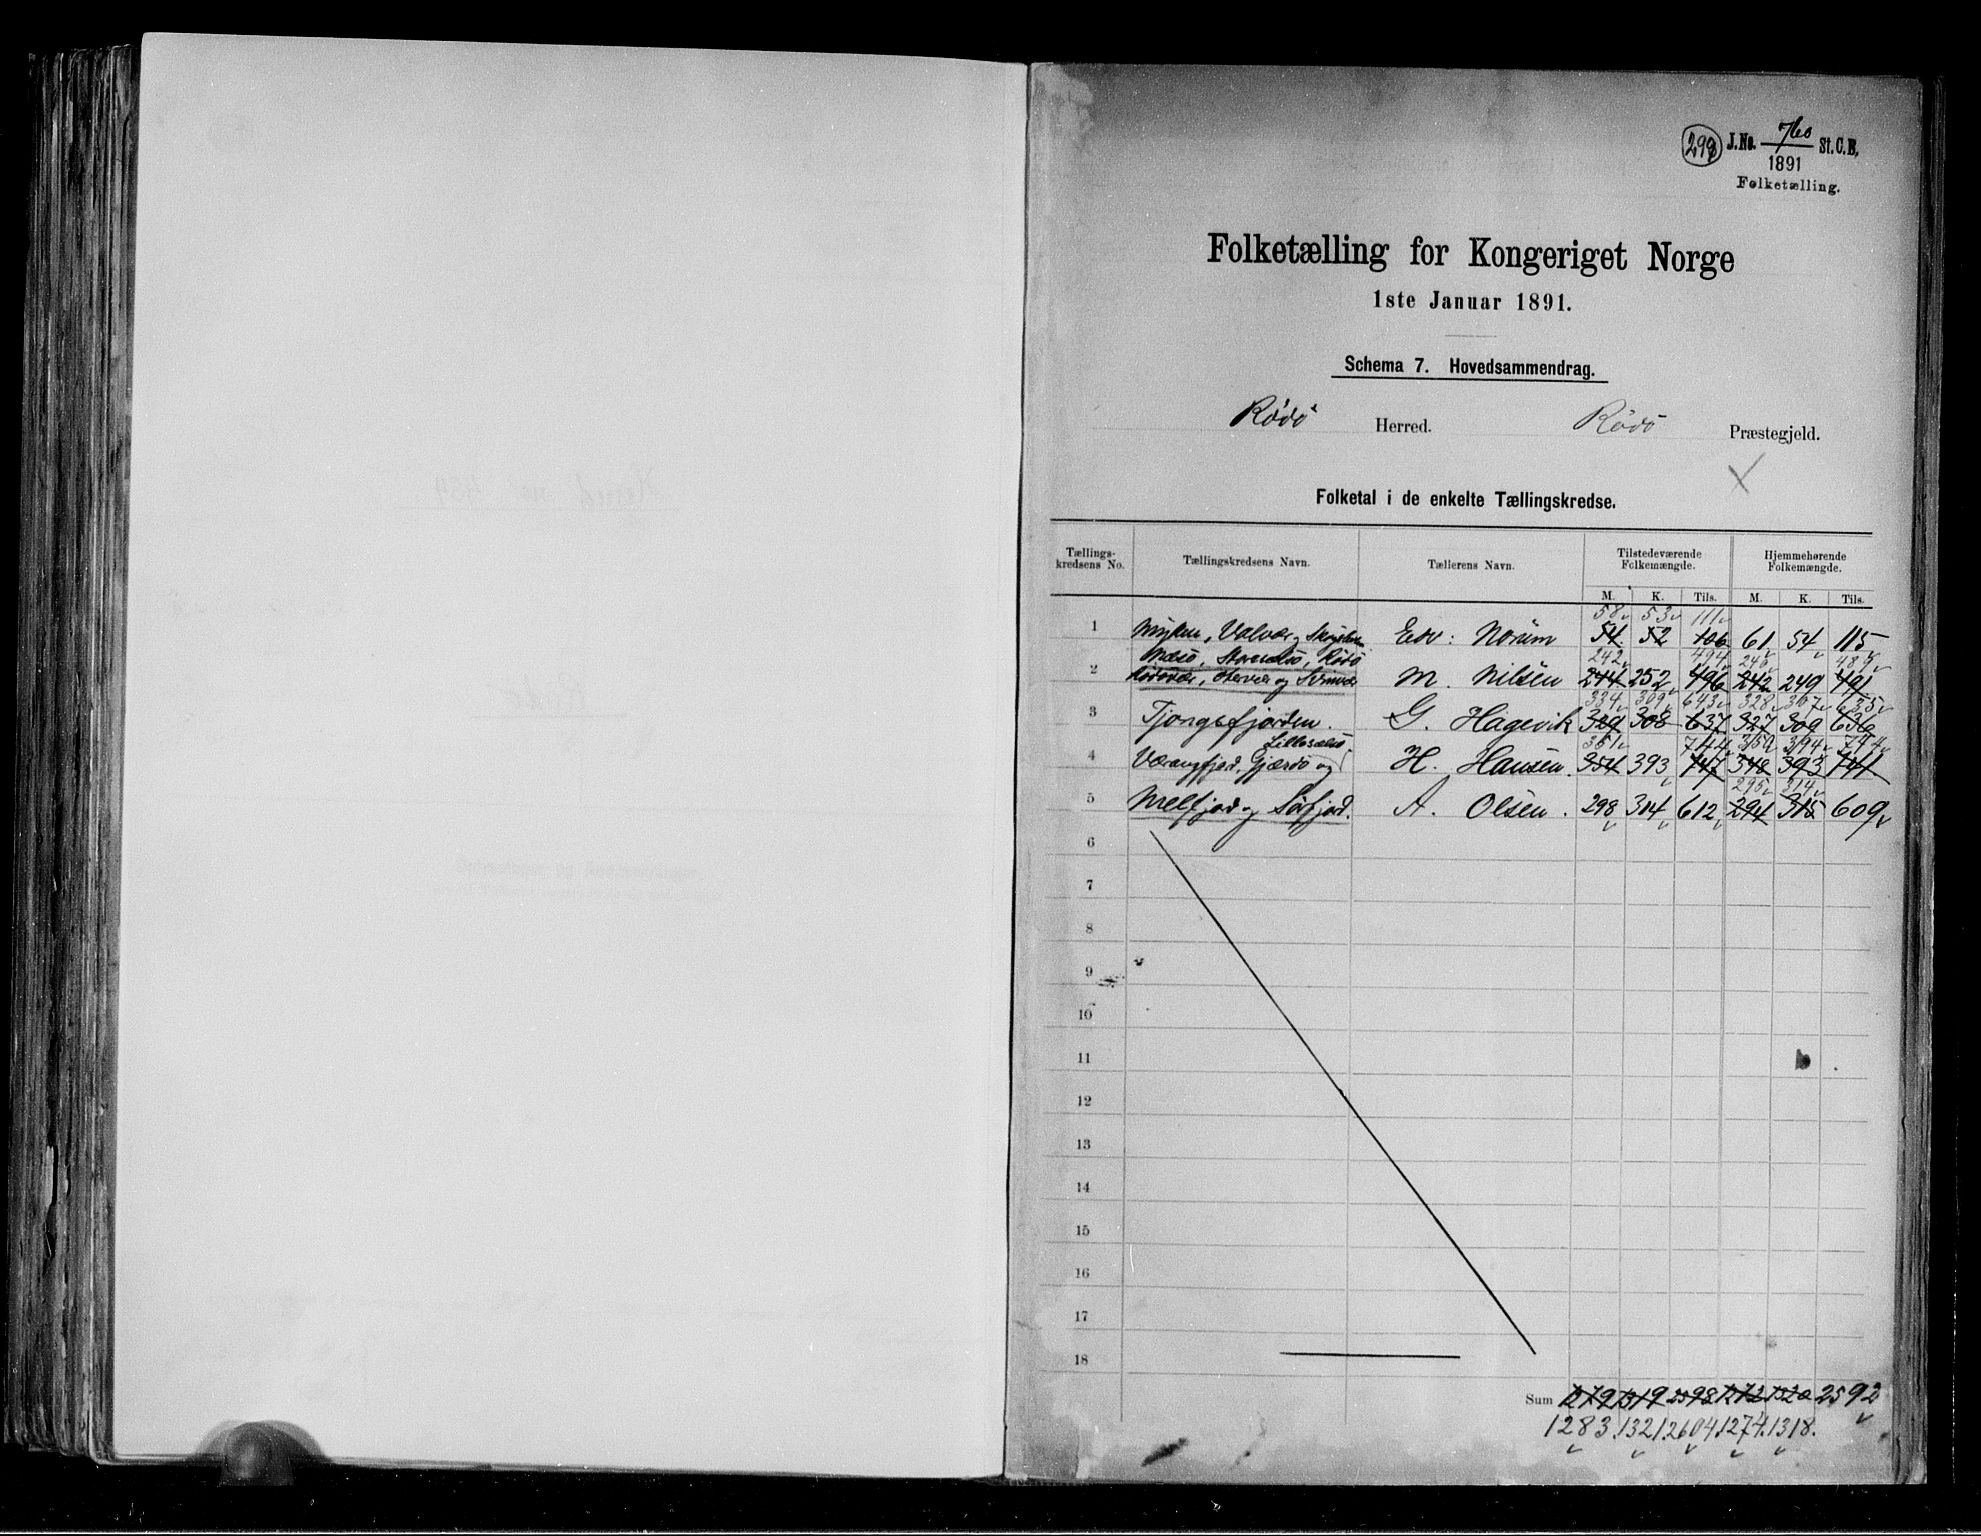 298 J.No. 760 St.C.B.
1891
Folketælling.
Folketælling for Kongeriget Norge
1ste Januar 1891.
Schema 7. Hovedsammendrag.
Rödö Herred. Rödö Præstegjeld.
Folketal i de enkelte Tællingskredse.
Tællings-kredsens No. Tællingskredsens Navn. Tællerens Navn. Tilstedeværende Folkemængde. Hjemmehørende Folkemængde.
M. K. Tils. M. K. Tils.
58 53 111
1 Myken, Valvær og Edv: Norum 54 52 106 61 54 115
Næsö, Storselsö, Rödö 242 494 240 489
2 Rödövær, og Svinvær M. Nilsen 244 252 496 242 249 491
334 309 643 328 307 635
3 Tjongsfjorden. G. Hagevik 329 308 637 327 309 636
Lilleselsö 351 744 350 394 744
4 Værangfjord, Gjærdö og H. Hansen. 354 393 747 348 393 741
295 314
5 Melfjord og Sörfjord. A. Olsen. 298 314 612 294 315 609
6
7
8
9
10
11
12
13
14
15
16
17
18
Sum 1279 1319 2598 1272 1320 2592
1283. 1321. 2604. 1274. 1318.